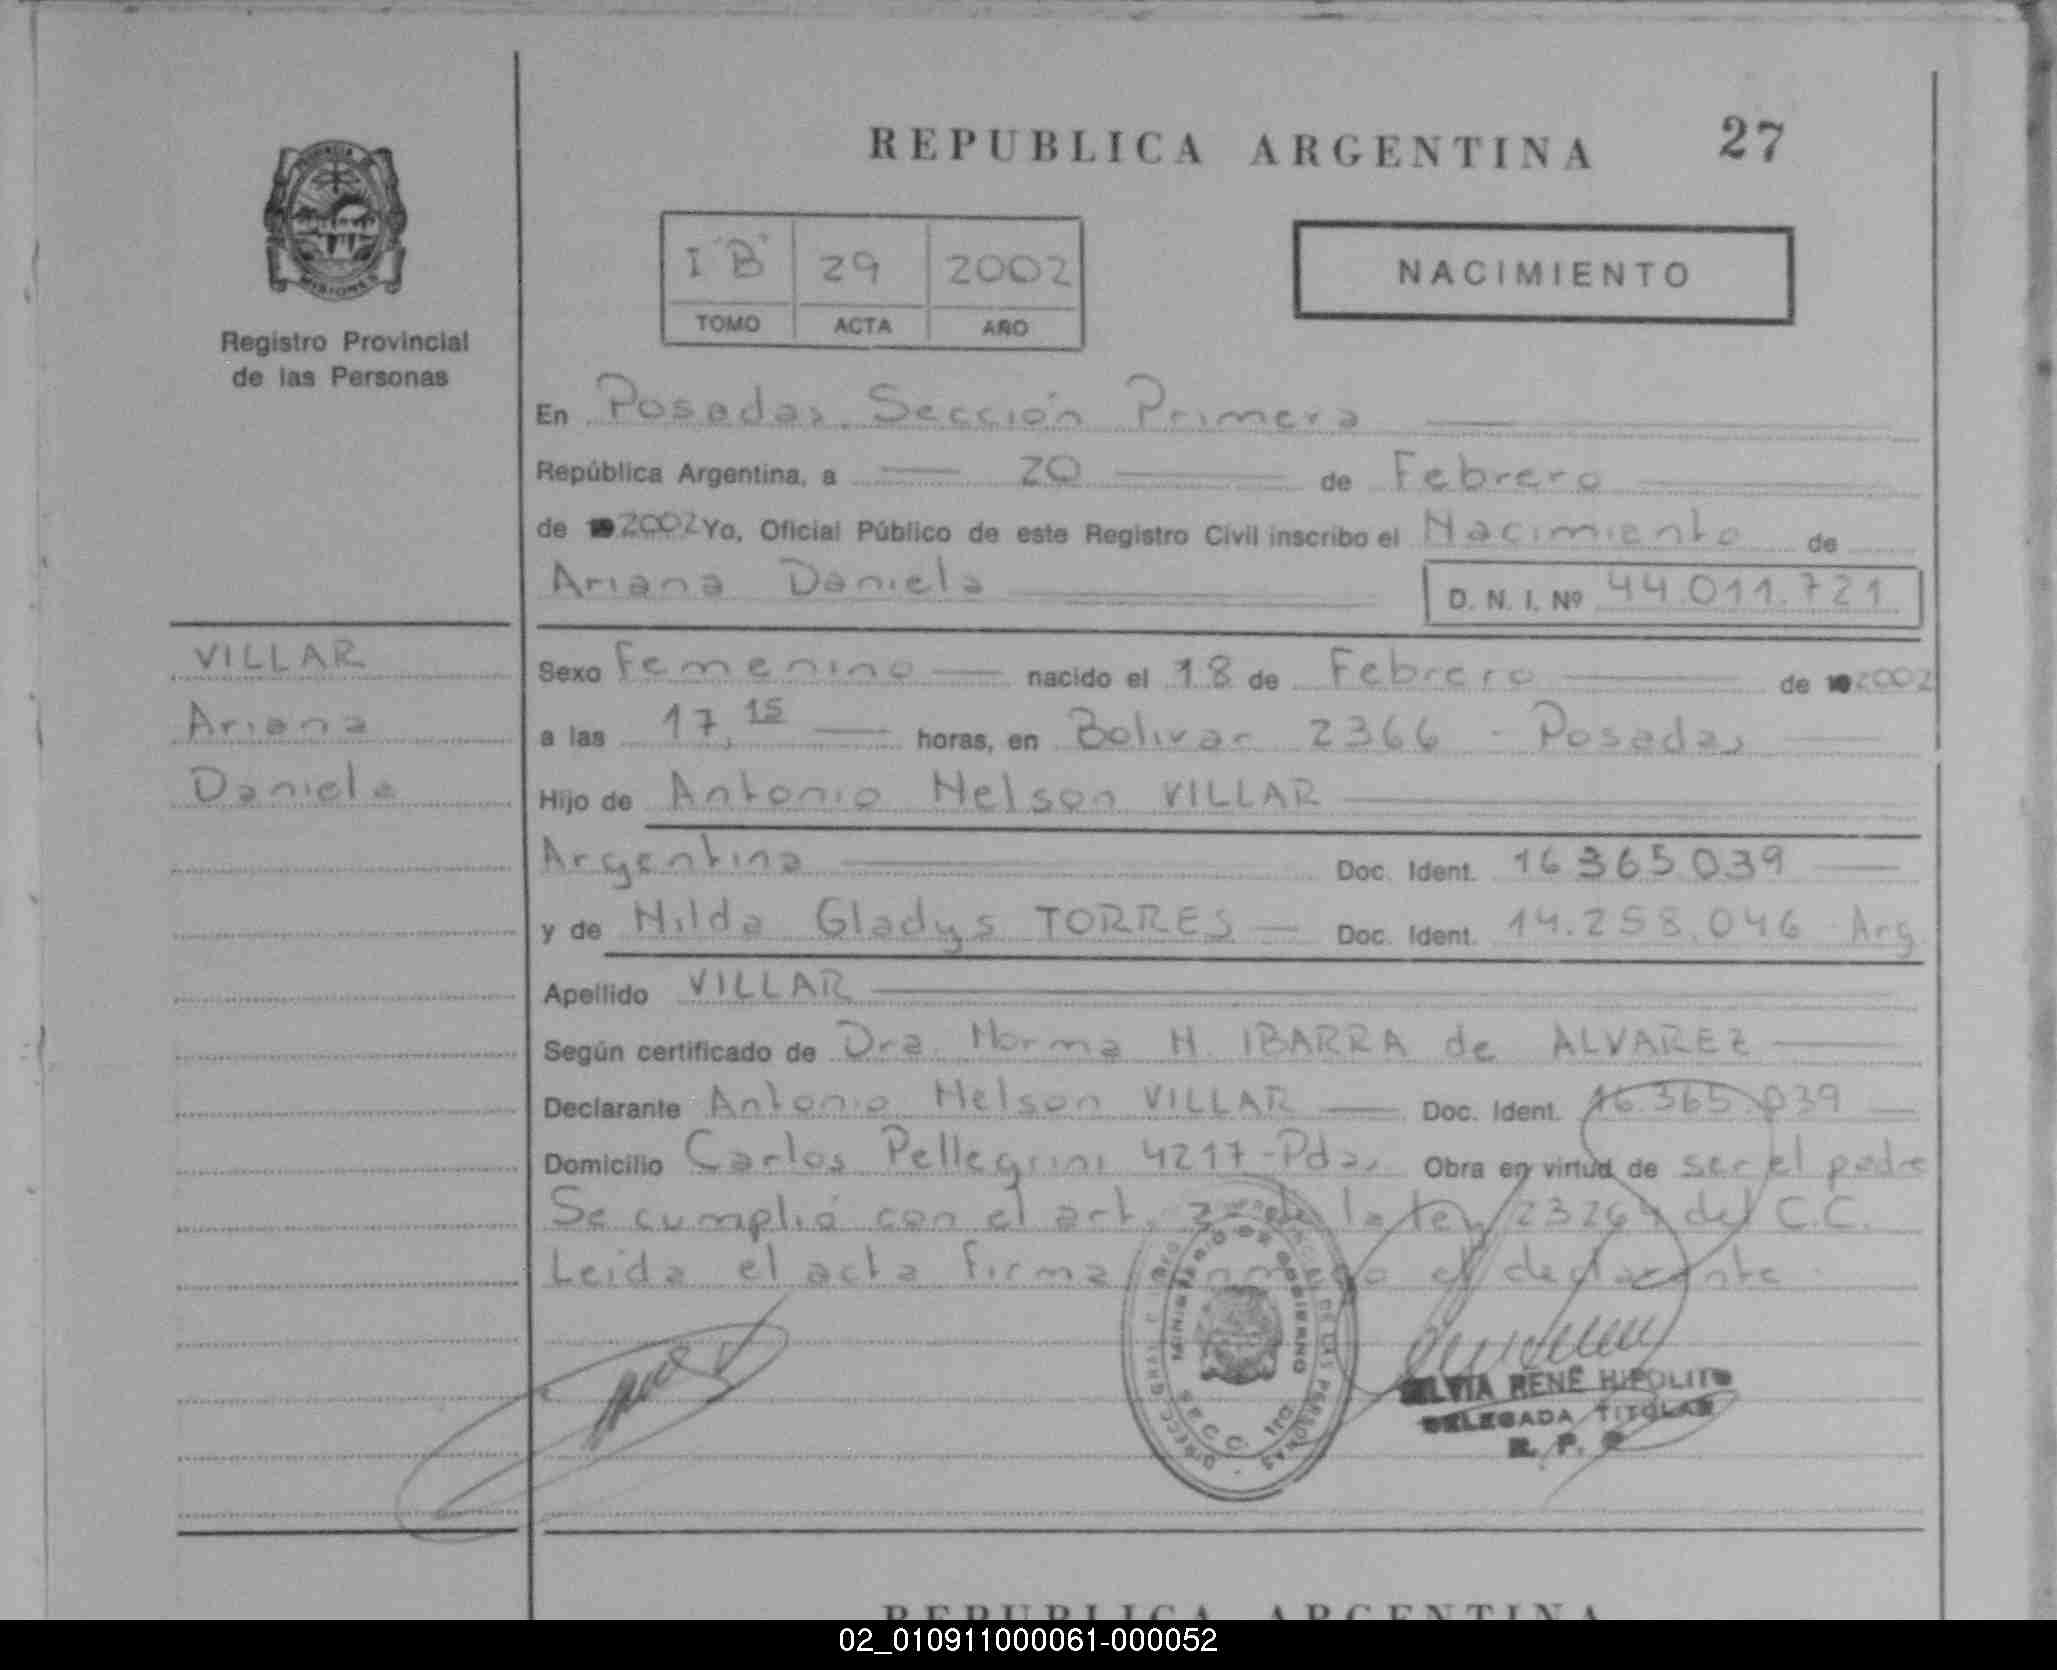 REPUBLICA ARGENTINA 27
PROVINCIA DE
MISIONES
Registro Provincial
de las Personas
I "B" 29 2002
TOMO ACTA AÑO
NACIMIENTO
En Posadas, Sección Primera
República Argentina, a 20 de Febrero
de 2002 Yo, Oficial Público de este Registro Civil inscribo el Nacimiento de
Ariana Daniela D. N. I. Nº 44.011.721
VILLAR
Ariana
Daniela
Sexo Femenino nacido el 18 de Febrero de 2002
a las 17,15 horas, en Bolivar 2366 - Posadas
Hijo de Antonio Nelson VILLAR
Argentina Doc. Ident. 16.365.039
y de Nilda Gladys TORRES Doc. Ident. 14.258.046 - Arg
Apellido VILLAR
Según certificado de Dra. Norma H. IBARRA de ALVAREZ
Declarante Antonio Nelson VILLAR Doc. Ident. 16.365.039
Domicilio Carlos Pellegrini 4217 - Pdas, Obra en virtud de ser el padre
Se cumplió con el art. de la ley 23264 del C.C.
Leida el acta firma conmigo el declarante.
MINISTERIO DE GOBIERNO
DE LAS PERSONAS
SILVIA RENÉ HIPOLITO
DELEGADA TITULAR
R. P. P.
REPUBLICA ARGENTINA
02_010911000061-000052